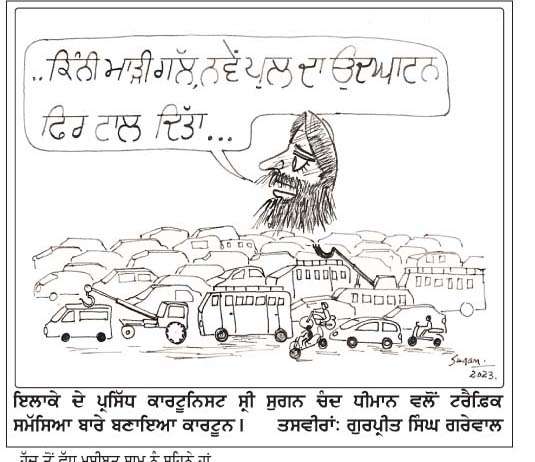 ..ਕਿੰਨੀ ਮਾੜੀ ਗੱਲ, ਨਵੇਂ ਪੁਲ ਦਾ ਉਦਘਾਟਨ
ਫਿਰ ਟਾਲ ਦਿੱਤਾ...
Sugan.
2023.
ਇਲਾਕੇ ਦੇ ਪ੍ਰਸਿੱਧ ਕਾਰਟੂਨਿਸਟ ਸ੍ਰੀ ਸੁਗਨ ਚੰਦ ਧੀਮਾਨ ਵਲੋਂ ਟਰੈਫ਼ਿਕ
ਸਮੱਸਿਆ ਬਾਰੇ ਬਣਾਇਆ ਕਾਰਟੂਨ। ਤਸਵੀਰਾਂ: ਗੁਰਪ੍ਰੀਤ ਸਿੰਘ ਗਰੇਵਾਲ